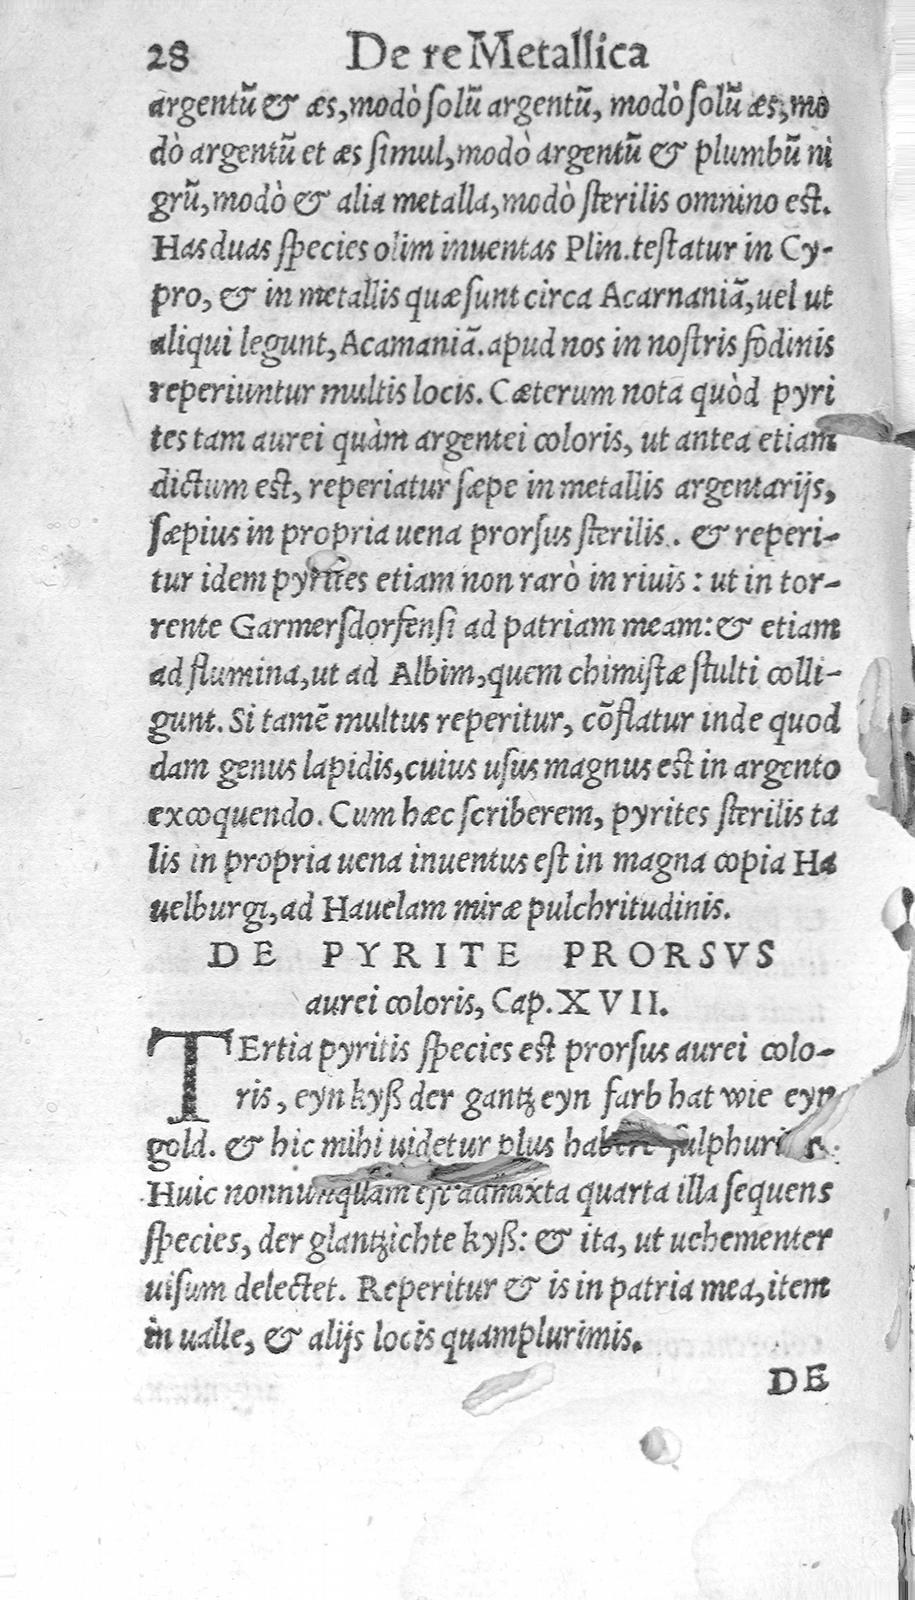 28 De re Metallica
argentũ & æs, modò ſolũ argentũ, modò ſolũ æs, mo
dò argentũ et æs ſimul, modò argentũ & plumbũ ni
grũ, modò & alia metalla, modò ſterilis omnino est.
Has duas ſpecies olim inuentas Plin. teſtatur in Cy-
pro, & in metallis quæ ſunt circa Acarnaniã, uel ut
aliqui legunt, Acamaniã. apud nos in noſtris fodinis
reperiuntur multis locis. Cæterum nota quòd pyri
tes tam aurei quàm argentei coloris, ut antea etiam
dictum est, reperiatur ſæpe in metallis argentarijs,
ſæpius in propria uena prorſus ſterilis. & reperi-
tur idem pyrites etiam non rarò in riuis: ut in tor-
rente Garmerſdorfenſi ad patriam meam: & etiam
ad flumina, ut ad Albim, quem chimiſtæ ſtulti colli-
gunt. Si tamẽ multus reperitur, cõflatur inde quod
dam genus lapidis, cuius uſus magnus est in argento
excoquendo. Cum hæc ſcriberem, pyrites ſterilis ta
lis in propria uena inuentus eſt in magna copia Ha
uelburgi, ad Hauelam miræ pulchritudinis.
DE PYRITE PRORSVS
aurei coloris, Cap. XVII.
TErtia pyritis ſpecies est prorſus aurei colo-
ris, eyn kyß der gantz eyn farb hat wie eyn
gold. & hic mihi uidetur plus habere
Huic nonnunquam eſt admixta quarta illa ſequens
ſpecies, der glantzichte kyß: & ita, ut uehementer
uiſum delectet. Reperitur & is in patria mea, item
in ualle, & alijs locis quamplurimis.
DE